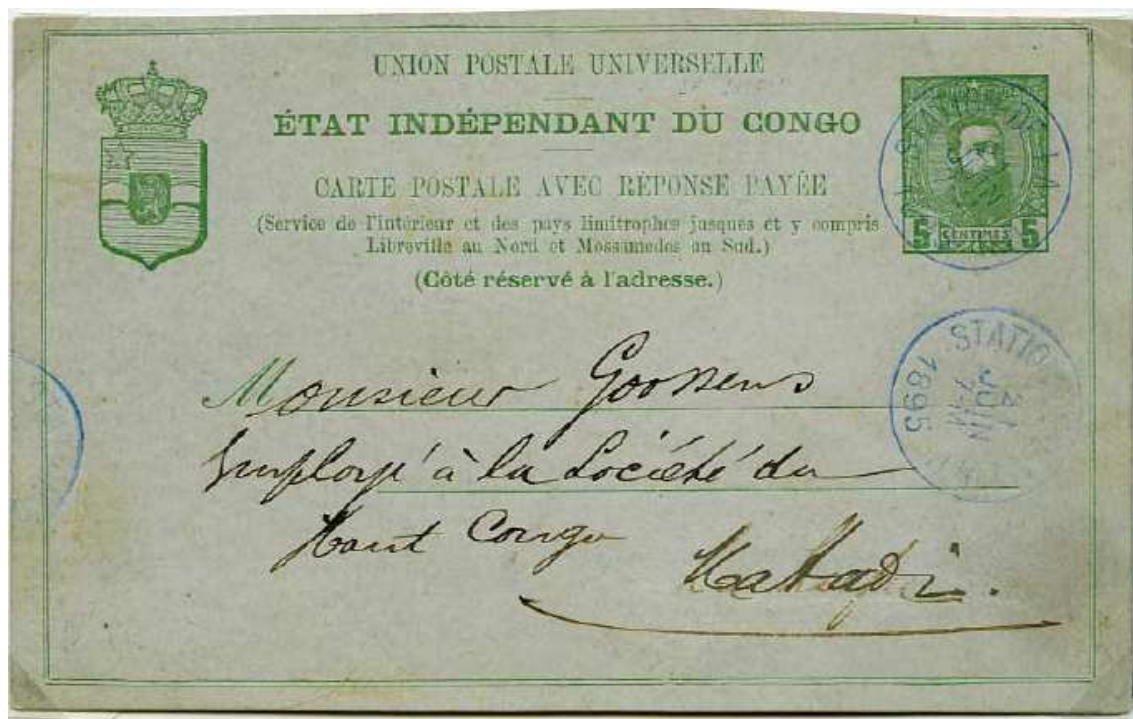 UNION POSTALE UNIVERSELLE
ÉTAT INDÉPENDANT DU CONGO
CARTE POSTALE AVEC RÉPONSE PAYÉE
(Service de l'intérieur et des pays limitrophes jusques et y compris
Libreville au Nord et Mossamedes au Sud.)
(Côté réservé à l'adresse.)
5 CENTIMES 5
STATION DE LA
STATIO
21
JUIN
1895
Monsieur Goossens
Employé à la Société du
Haut Congo
Matadi.